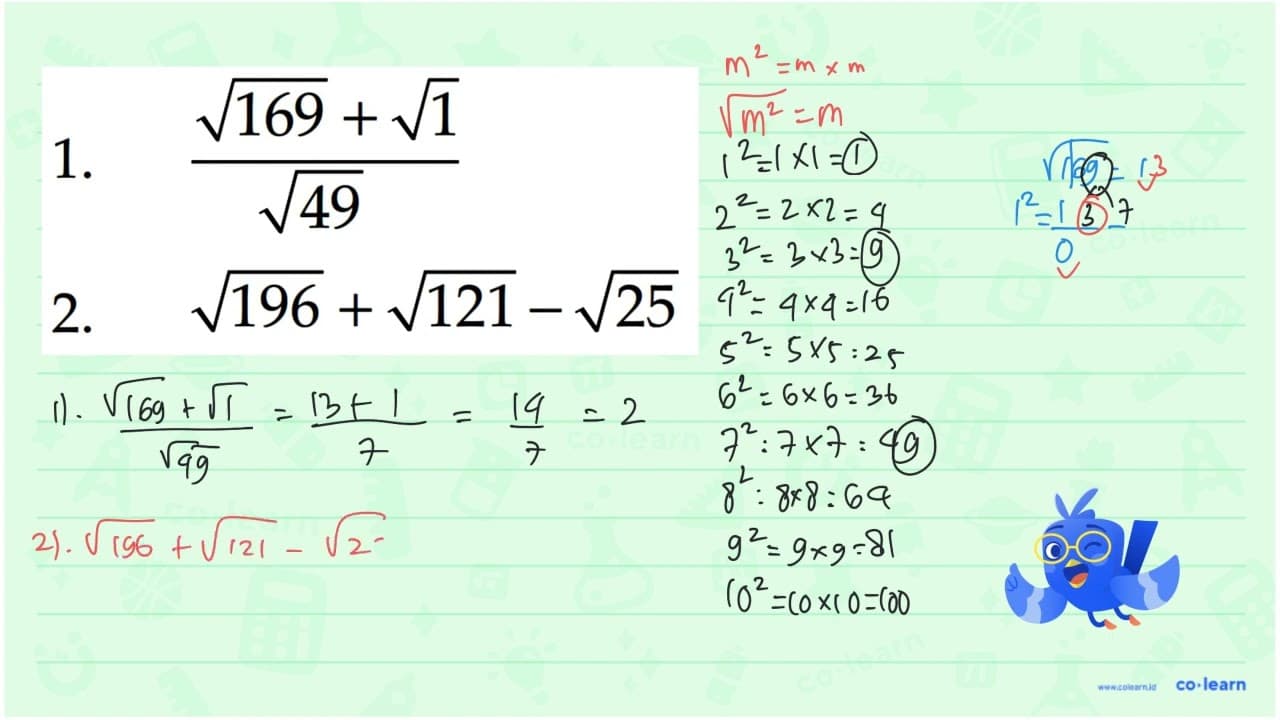 1. √169 + √1
√49
2. √196 + √121 − √25
1). √169 + √1 / √49 = 13 + 1 / 7 = 14 / 7 = 2
2). √196 + √121 − √2
m² = m × m
√m² = m
1² = 1 × 1 = 1
2² = 2 × 2 = 4
3² = 3 × 3 = 9
4² = 4 × 4 = 16
5² = 5 × 5 = 25
6² = 6 × 6 = 36
7² = 7 × 7 = 49
8² = 8 × 8 = 64
9² = 9 × 9 = 81
10² = 10 × 10 = 100
√169 = 13
1² = 1 3 7
0
www.colearn.id co·learn